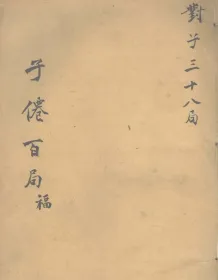 對子三十八局
子僊百局
福